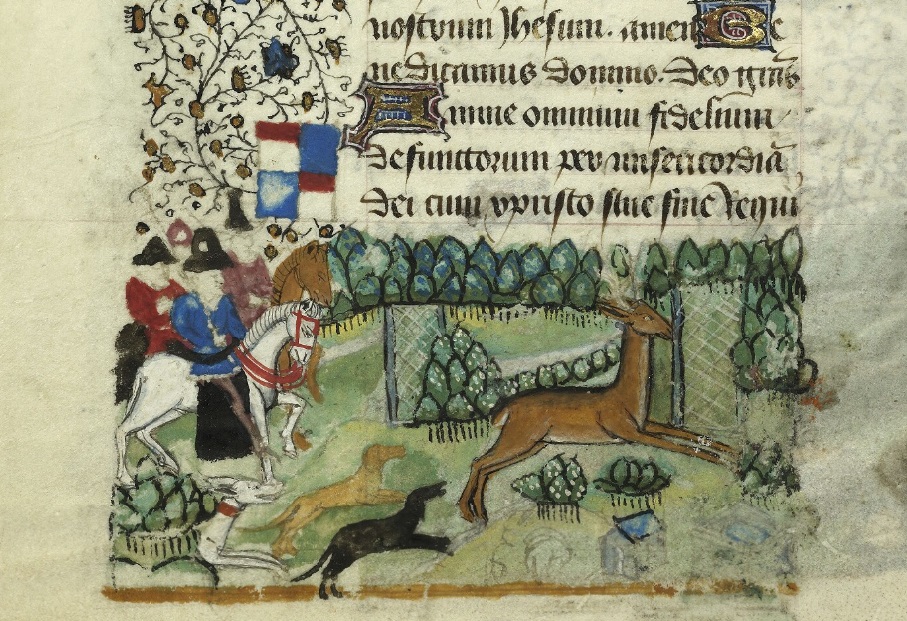 nostrum Jhesum. amen Be
nedicamus domino. Deo
Anime omnium fidelium
defunctorum per misericordiā
dei cum xpristo sine fine Requi